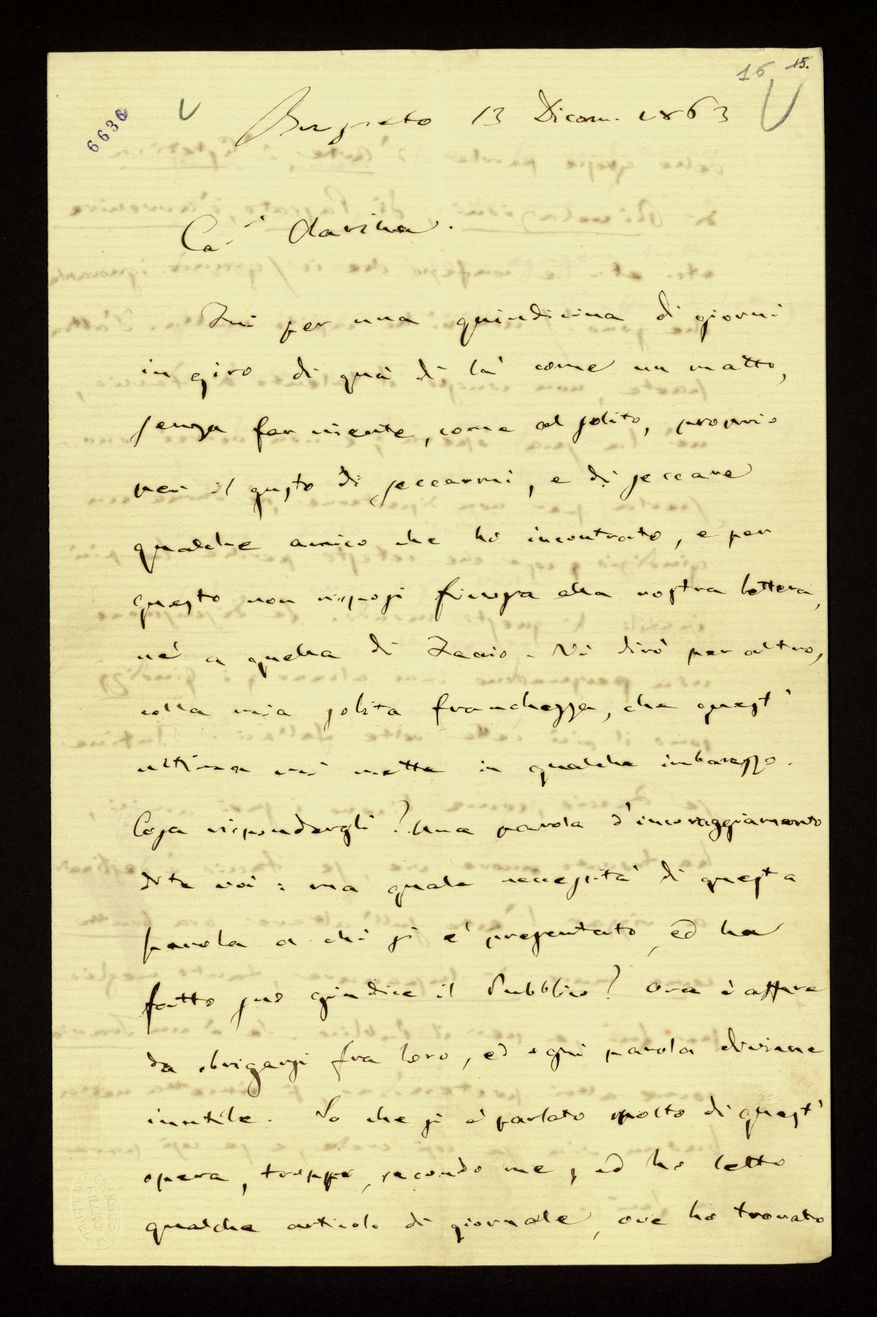 16 15.
6636
Busseto 13 Dicem. 1863
Ca.ma Clarina.
Fui per una quindicina di giorni
in giro di quà di là come un matto,
senza far niente, come al solito, proprio
per il gusto di seccarmi, e di seccare
qualche amico che ho incontrato, e per
questo non risposi finora alla vostra lettera,
nè a quella di Faccio. Vi dirò per altro,
colla mia solita franchezza, che quest'
ultima mi mette in qualche imbarazzo.
Cosa rispondergli? Una parola d'incoraggiamento
dite voi: ma quale necessità di questa
parola a chi si è presentato, ed ha
fatto suo giudice il Pubblico? Ora è affare
da sbrigarsi fra loro, ed ogni parola diviene
inutile. So che si è parlato molto di quest'
opera, troppo, secondo me, ed ho letto
qualche articolo di giornale, ove ho trovato